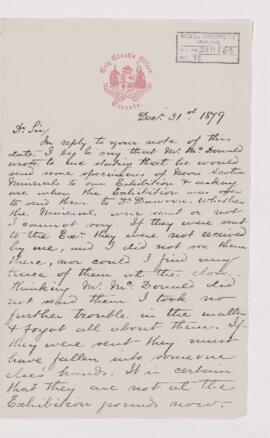 City Clerk's Office
Canada.
McGILL UNIVERSITY
ARCHIVES
ACC. NO. 2211/69
REF. 45
Decr. 31st 1879
Dr Sir
In reply to your note of this
date I beg to say that Mr. McDonald
wrote to me stating that he would
send some specimens of Nova Scotia
Minerals to our Exhibition & asking
me when the Exhibition was over
to send them to Dr Dawson. Whether
the Minerals were sent or not
I cannot say. If they were sent
to the Exn they were not received
by me, and I did not see them
there, nor could I find any
trace of them at the close.
Thinking Mr. McDonald did
not send them I took no
further trouble in the matter
& forgot all about them. If
they were sent they must
have fallen into someone
elses hands. It is certain
that they are not at the
Exhibition grounds now.